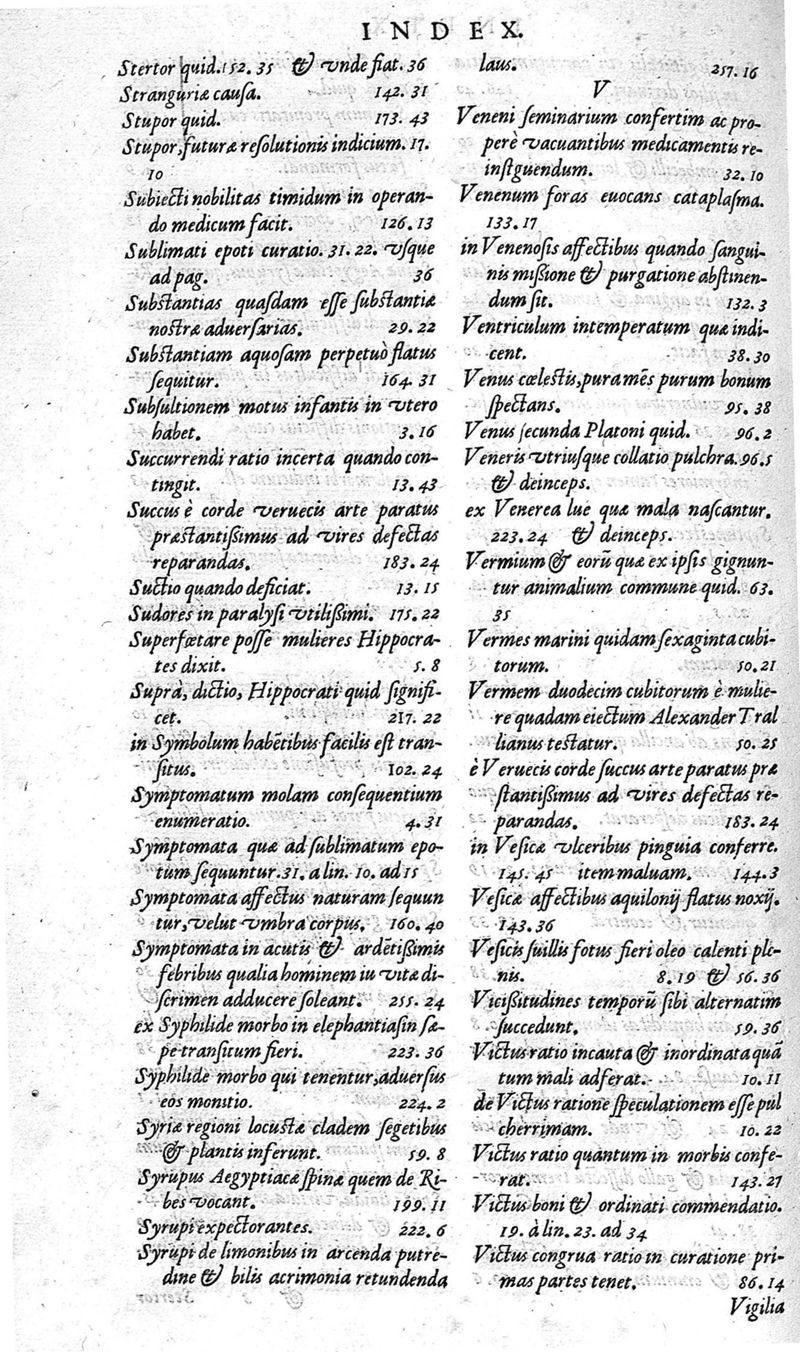 INDEX.
Stertor quid.152.35 & vnde fiat.36
Stranguriæ causa. 142.31
Stupor quid. 173.43
Stupor, futuræ resolutionis indicium. 17.
10
Subiecti nobilitas timidum in operan-
do medicum facit. 126.13
Sublimati epoti curatio. 31.22. vsque
ad pag. 36
Substantias quasdam esse substantiæ
nostræ aduersarias. 29.22
Substantiam aquosam perpetuò flatus
sequitur. 164.31
Subsultionem motus infantis in vtero
habet. 3.16
Succurrendi ratio incerta quando con-
tingit. 13.43
Succus è corde veruecis arte paratus
præstantißimus ad vires defectas
reparandas. 183.24
Suctio quando deficiat. 13.15
Sudores in paralysi vtilißimi. 175.22
Superfœtare posse mulieres Hippocra-
tes dixit. 5.8
Suprà, dictio, Hippocrati quid signifi-
cet. 217.22
in Symbolum habētibus facilis est tran-
situs. 102.24
Symptomatum molam consequentium
enumeratio. 4.31
Symptomata quæ ad sublimatum epo-
tum sequuntur.31. a lin. 10. ad 15
Symptomata affectus naturam sequun
tur, velut vmbra corpus. 160.40
Symptomata in acutis & ardētißimis
febribus qualia hominem iu vitæ di-
scrimen adducere soleant. 255.24
ex Syphilide morbo in elephantiasin sæ-
pe transitum fieri. 223.36
Syphilide morbo qui tenentur, aduersus
eos monitio. 224.2
Syriæ regioni locustæ cladem segetibus
& plantis inferunt. 59.8
Syrupus Aegyptiacæ spinæ quem de Ri-
bes vocant. 199.11
Syrupi expectorantes. 222.6
Syrupi de limonibus in arcenda putre-
dine & bilis acrimonia retundenda
laus. 257.16
V
Veneni seminarium confertim ac pro-
perè vacuantibus medicamentis re-
instguendum. 32.10
Venenum foras euocans cataplasma.
133.17
in Venenosis affectibus quando sangui-
nis mißione & purgatione abstinen-
dum sit. 132.3
Ventriculum intemperatum quæ indi-
cent. 38.30
Venus cœlestis, pura mēs purum bonum
spectans. 95.38
Venus secunda Platoni quid. 96.2
Veneris vtriusque collatio pulchra. 96.5
& deinceps.
ex Venerea lue quæ mala nascantur.
223.24 & deinceps.
Vermium & eorū quæ ex ipsis gignun-
tur animalium commune quid. 63.
35
Vermes marini quidam sexaginta cubi-
torum. 50.21
Vermem duodecim cubitorum è mulie-
re quadam eiectum Alexander Tral
lianus testatur. 50.25
è Veruecis corde succus arte paratus præ
stantißimus ad vires defectas re-
parandas. 183.24
in Vesicæ vlceribus pinguia conferre.
145.45 item maluam. 144.3
Vesicæ affectibus aquilonij flatus noxij.
143.36
Vesicis suillis fotus fieri oleo calenti ple-
nis. 8.19 & 56.36
Vicißitudines temporū sibi alternatim
succedunt. 59.36
Victus ratio incauta & inordinata quā
tum mali adferat. 10.11
de Victus ratione speculationem esse pul
cherrimam. 10.22
Victus ratio quantum in morbis confe-
rat. 143.27
Victus boni & ordinati commendatio.
19. à lin. 23. ad 34
Victus congrua ratio in curatione pri-
mas partes tenet. 86.14
Vigilia